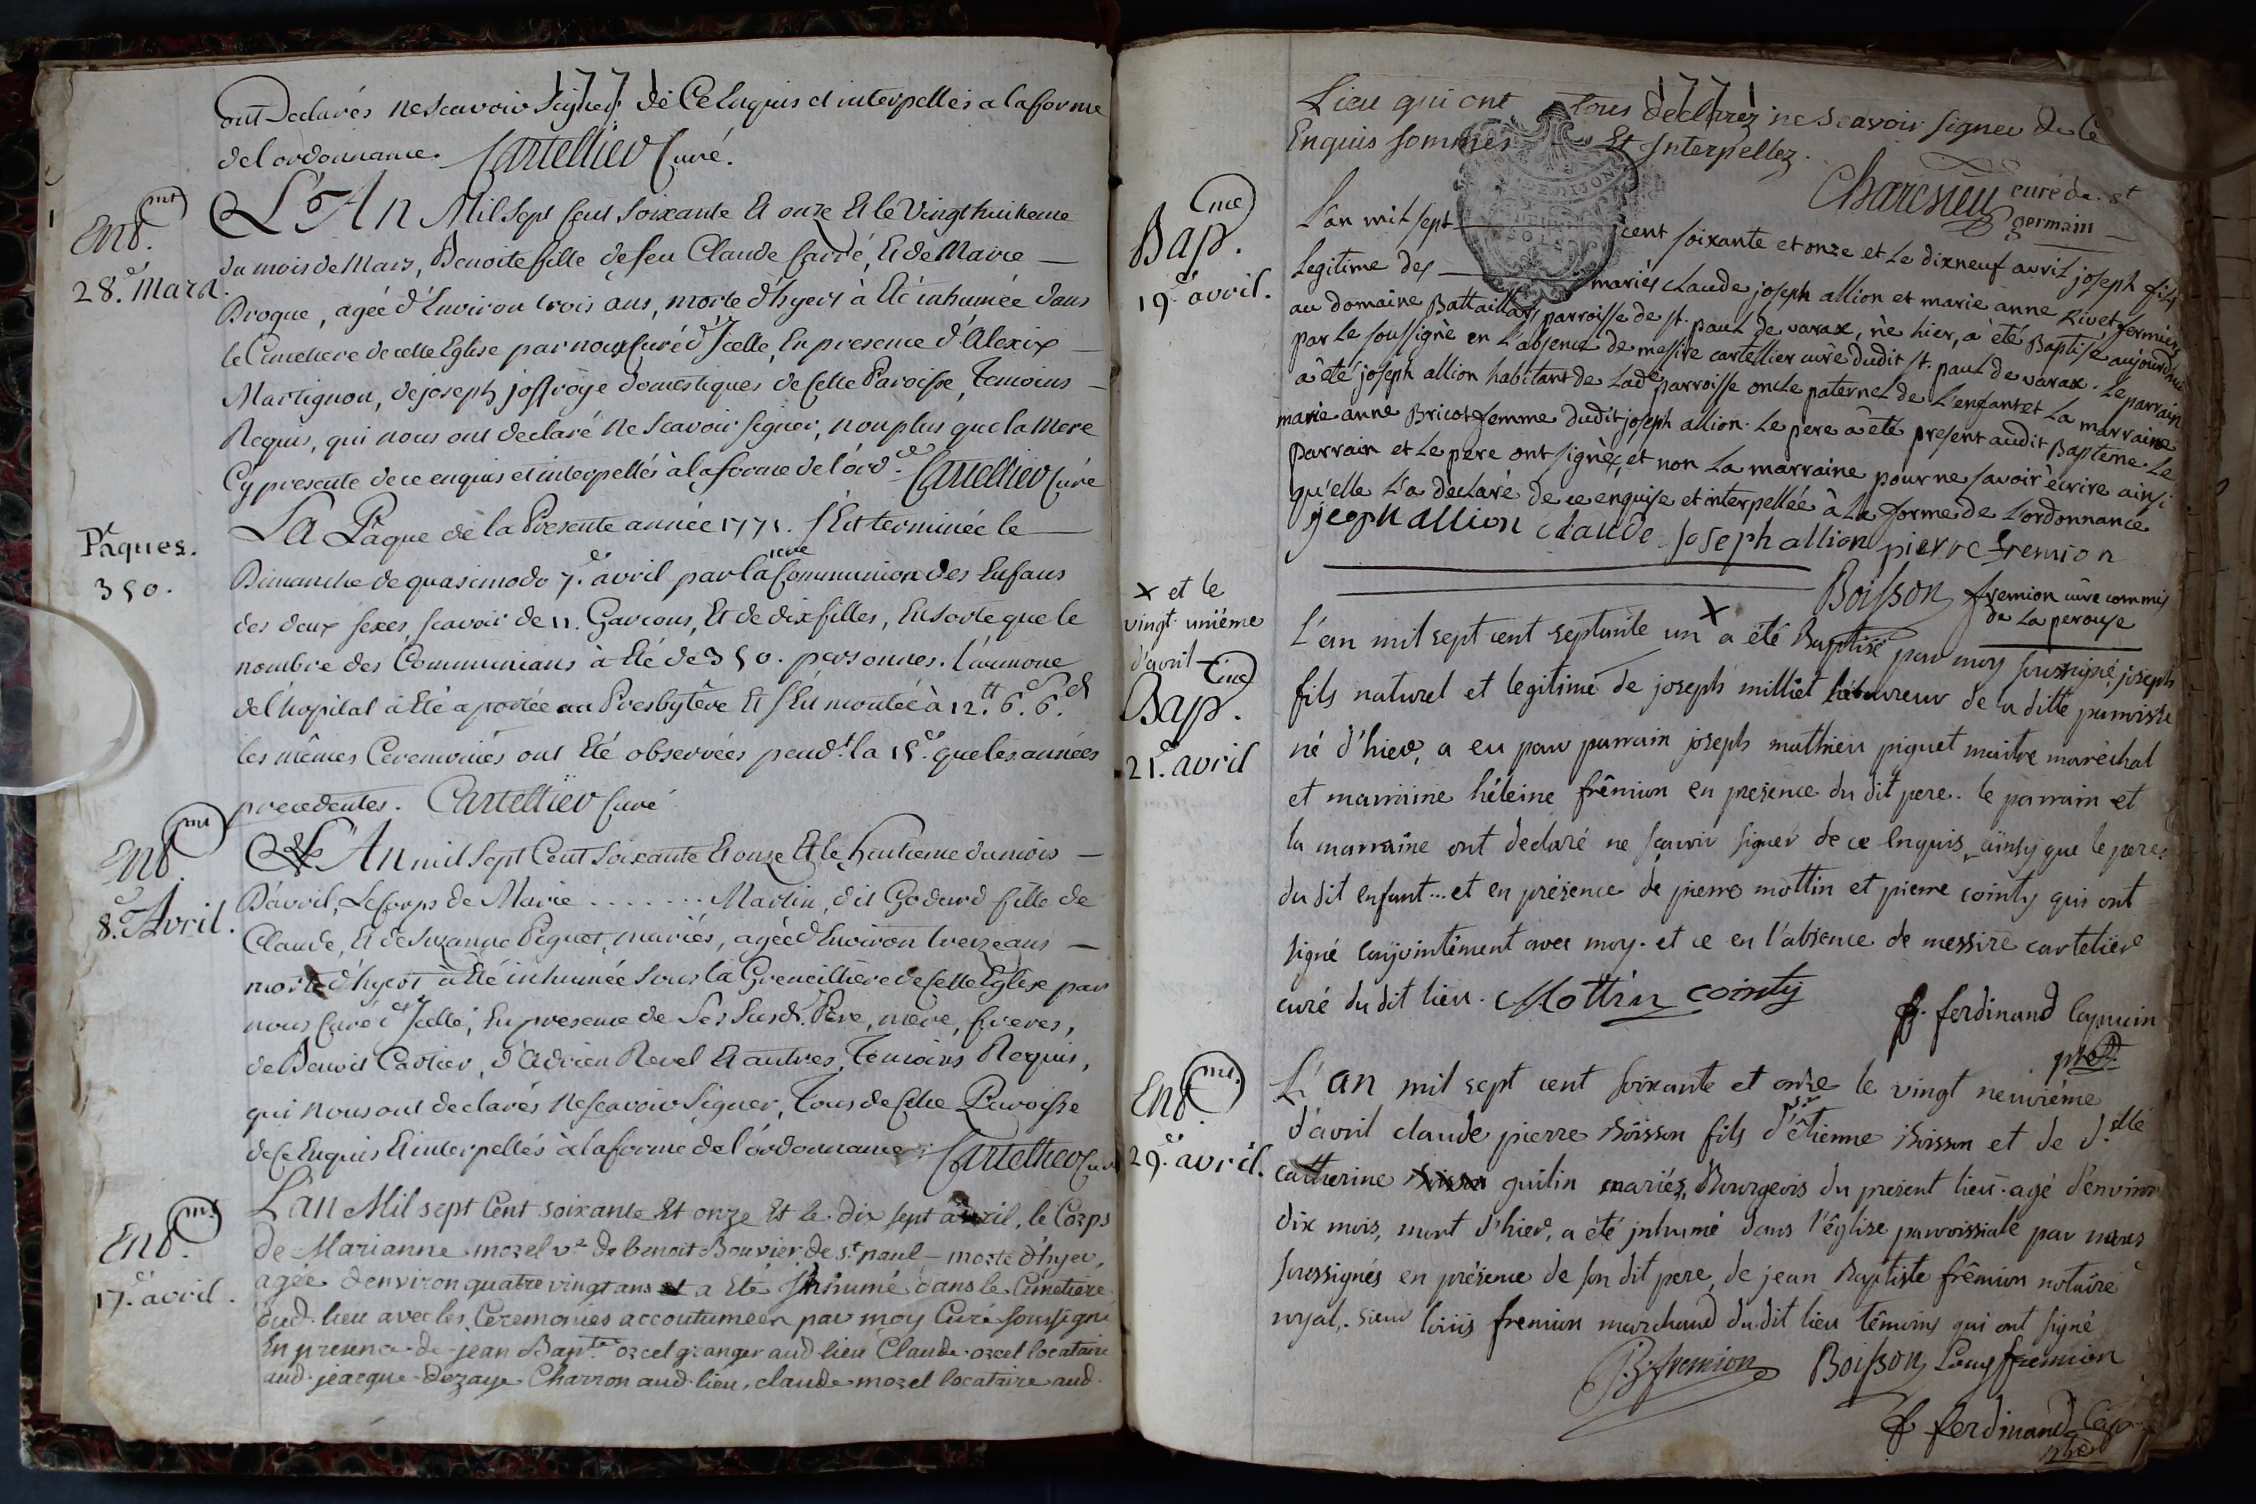 1771
ont Declarés ne scavoir Signer, de Ce Enquis et interpellés a la forme
de l'ordonnance. Cartellier Curé.
Ent.mt
28.e Mars.
L'An Mil sept Cent soixante Et onze Et le Vingt huitieme
du mois de Mars, Benoite fille de feu Claude Carré, Et de Marie
Broque, agée d'Environ trois ans, morte d'hyers à Eté inhumée dans
le Cimetiere de cette Eglise par nous Curé d'Icelle, En presence d'Alexix
Martignon, de joseph joffroÿe domestiques de Cette Paroisse, Temoins
Requis, qui nous ont declaré ne scavoir signer, non plus que la Mere
Cy presente de ce enquis et interpellés à la forme de l'ord.ce Cartellier Curé
Pâques.
350.
La Pâque de la Presente année 1771. s'Est terminée le
Dimanche de quasimodo 7.e avril par la 1ere Communion des Enfans
des deux sexes, scavoir de 11. Garcons, Et de dix filles, En sorte que le
nombre des Communians à Eté de 350. personnes. l'aumone
de l'hopital à Eté aportée au Presbytêre Et s'Est montée à 12.tt 6.s 6.d
les mêmes Ceremonies ont Eté observées pend.t la 15.e que les années
precedentes. Cartellier Curé
Ent.mt
8.e Avril.
L'An mil sept Cent soixante Et onze Et le huitieme du mois
D'avril, Le Corps de Marie ....... Martin, dit Godard fille de
Claude, Et de Suzanne Piguet, mariés, agée d'Environ treize ans
morte d'hyers à Eté inhumée sous la Greneilliere de Cette Eglise par
nous Curé d'Icelle, En presence de Ses Susd. Pere, mere, freres,
de Benoit Cartier, d'Adrien Revel Et autres, Temoins Requis,
qui nous ont declarés Ne scavoir Signer, Tous de Cette Paroisse
de Ce Enquis Et interpellés à la forme de l'ordonnance. Cartellier
Ent.mt
17.e avril.
L'an Mil sept Cent soixante Et onze Et le dix sept avril, le Corps
de Marianne morel v.e de benoit Bouvier de s.t paul morte d'hyer,
agée d'environ quatre vingt ans a Eté Inhumé dans le Cimetiere
dud. lieu avec les Ceremonies accoutumeer par moy Curé soussigné
En presence de jean Bap.te orcel granger aud. lieu Claude orcel locataire
aud. jeacque Dezaye Charron aud. lieu, claude morel locataire aud.
1771
Lieu qui ont tous déclarez ne Scavoir signer de Ce
Enquis sommés Et Interpellez.
Charcsieu curé de st
germain
Bap.me
19.e avril.
L'an mil sept cent soixante et onze et Le dixneuf avril joseph fils
Legitime des mariés claude joseph allion et marie anne Rivet fermiers
au domaine Battaillard, parroisse de st. paul de varax, né hier, a été Baptisé aujourdhui
par Le soussigné en L'absence de messire cartellier curé dudit st. paul de varax. Le parrain
a été joseph allion habitant de Lade parroisse oncle paternel de L'enfant et La marraine
marie anne Bricot femme dudit joseph allion. Le pere a été present audit Baptême. Le
parrain et Le pere ont signés, et non La marraine pour ne savoir écrire ainsi
qu'elle L'a déclaré de ce enquise et interpellée à La forme de L'ordonnance
jeoph allion claude joseph allion pierre fremion
Boisson fremion curé commis
de La perouse
x et le
vingt unième
d'avril
Bap.me
21.e avril
L'an mil sept cent septante un x a été Baptisé par moy soussigné, joseph
fils naturel et legitime de joseph milliet laboureur de la ditte parroisse
né d'hier, a eu pour parrain joseph mathieu piguet maitre maréchal
et marraine héleine frêmion en presence du dit pere. le parrain et
la marraine ont declaré ne sçavoir signer de ce enquis, ainsy que le pere
du dit enfant... et en présence de pierre mottin et pierre cointy qui ont
signé conjointement avec moy. et ce en l'absence de messire cartelier
curé du dit lieu. Mottin cointy
f. ferdinand
Ent.mt
29.e avril.
L'an mil sept cent soixante et onze le vingt neuvième
d'avril claude pierre Boisson fils d'étienne Boisson et de d.elle
catherine guilin mariés, Bourgeois du present lieu. agé d'environ
dix mois, mort d'hier, a été inhumé dans l'église parroissiale par nous
soussignés en présence de son dit pere, de jean Baptiste frêmion notaire
royal, sieur loüis fremion marchand du dit lieu têmoins qui ont signé
fremion Boisson Louy fremion
f ferdinand